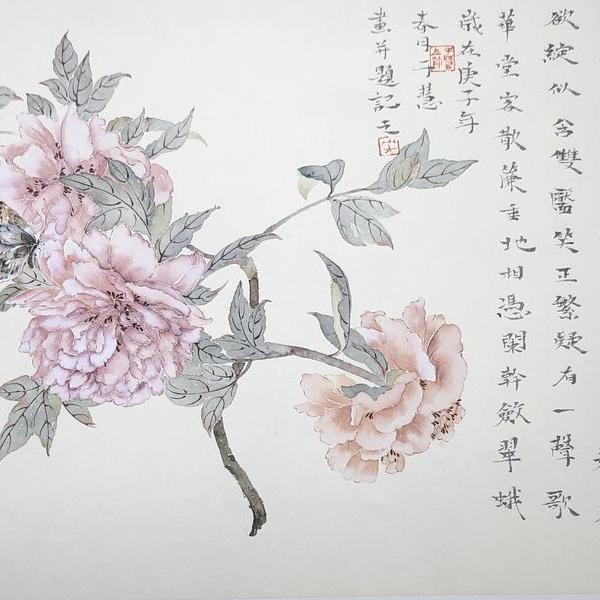 欲綻似含雙靨笑正繁疑有一聲歌
華堂客散簾垂地相憑闌幹斂翠蛾
歲在庚子年
春月于慧
畫并題記之